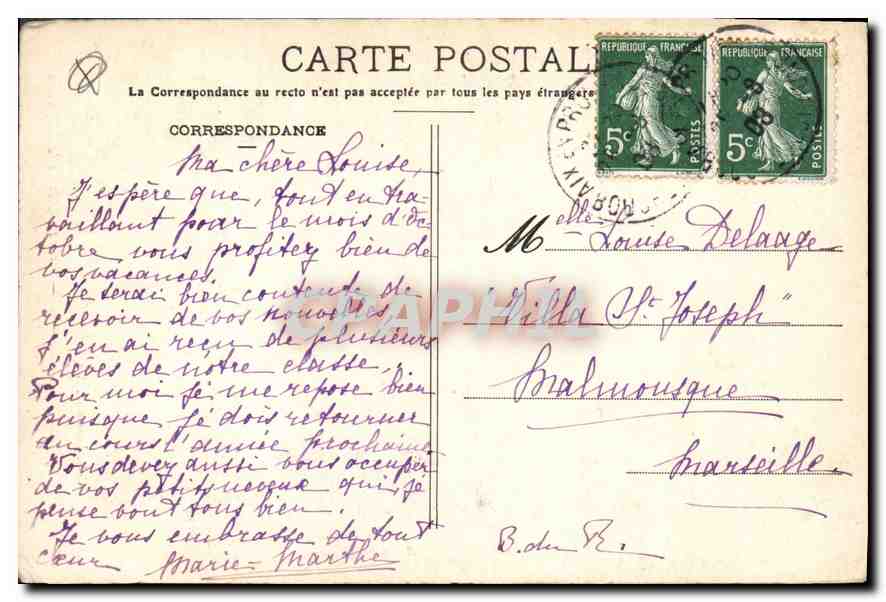 CARTE POSTALE
La Correspondance au recto n'est pas acceptée par tous les pays étrangers
RÉPUBLIQUE FRANÇAISE
5c
POSTES
RÉPUBLIQUE FRANÇAISE
5c
POSTES
08
CORRESPONDANCE
Ma chère Louise,
J'espère que, tout en tra-
vaillant pour le mois d'Oc-
tobre vous profitez bien de
vos vacances.
Je serai bien contente de
recevoir de vos nouvelles,
j'en ai reçu de plusieurs
élèves de nôtre classe,
Pour moi je me repose bien
puisque je dois retourner
au cours l'année prochaine.
Vous devez aussi vous occuper
de vos petits neveux qui, je
pense vont tous bien.
Je vous embrasse de tout
cœur Marie-Marthe
Melle Louise Delaage
"Villa St Joseph"
Malmousque
Marseille.
B. du R.
CPAPHIL